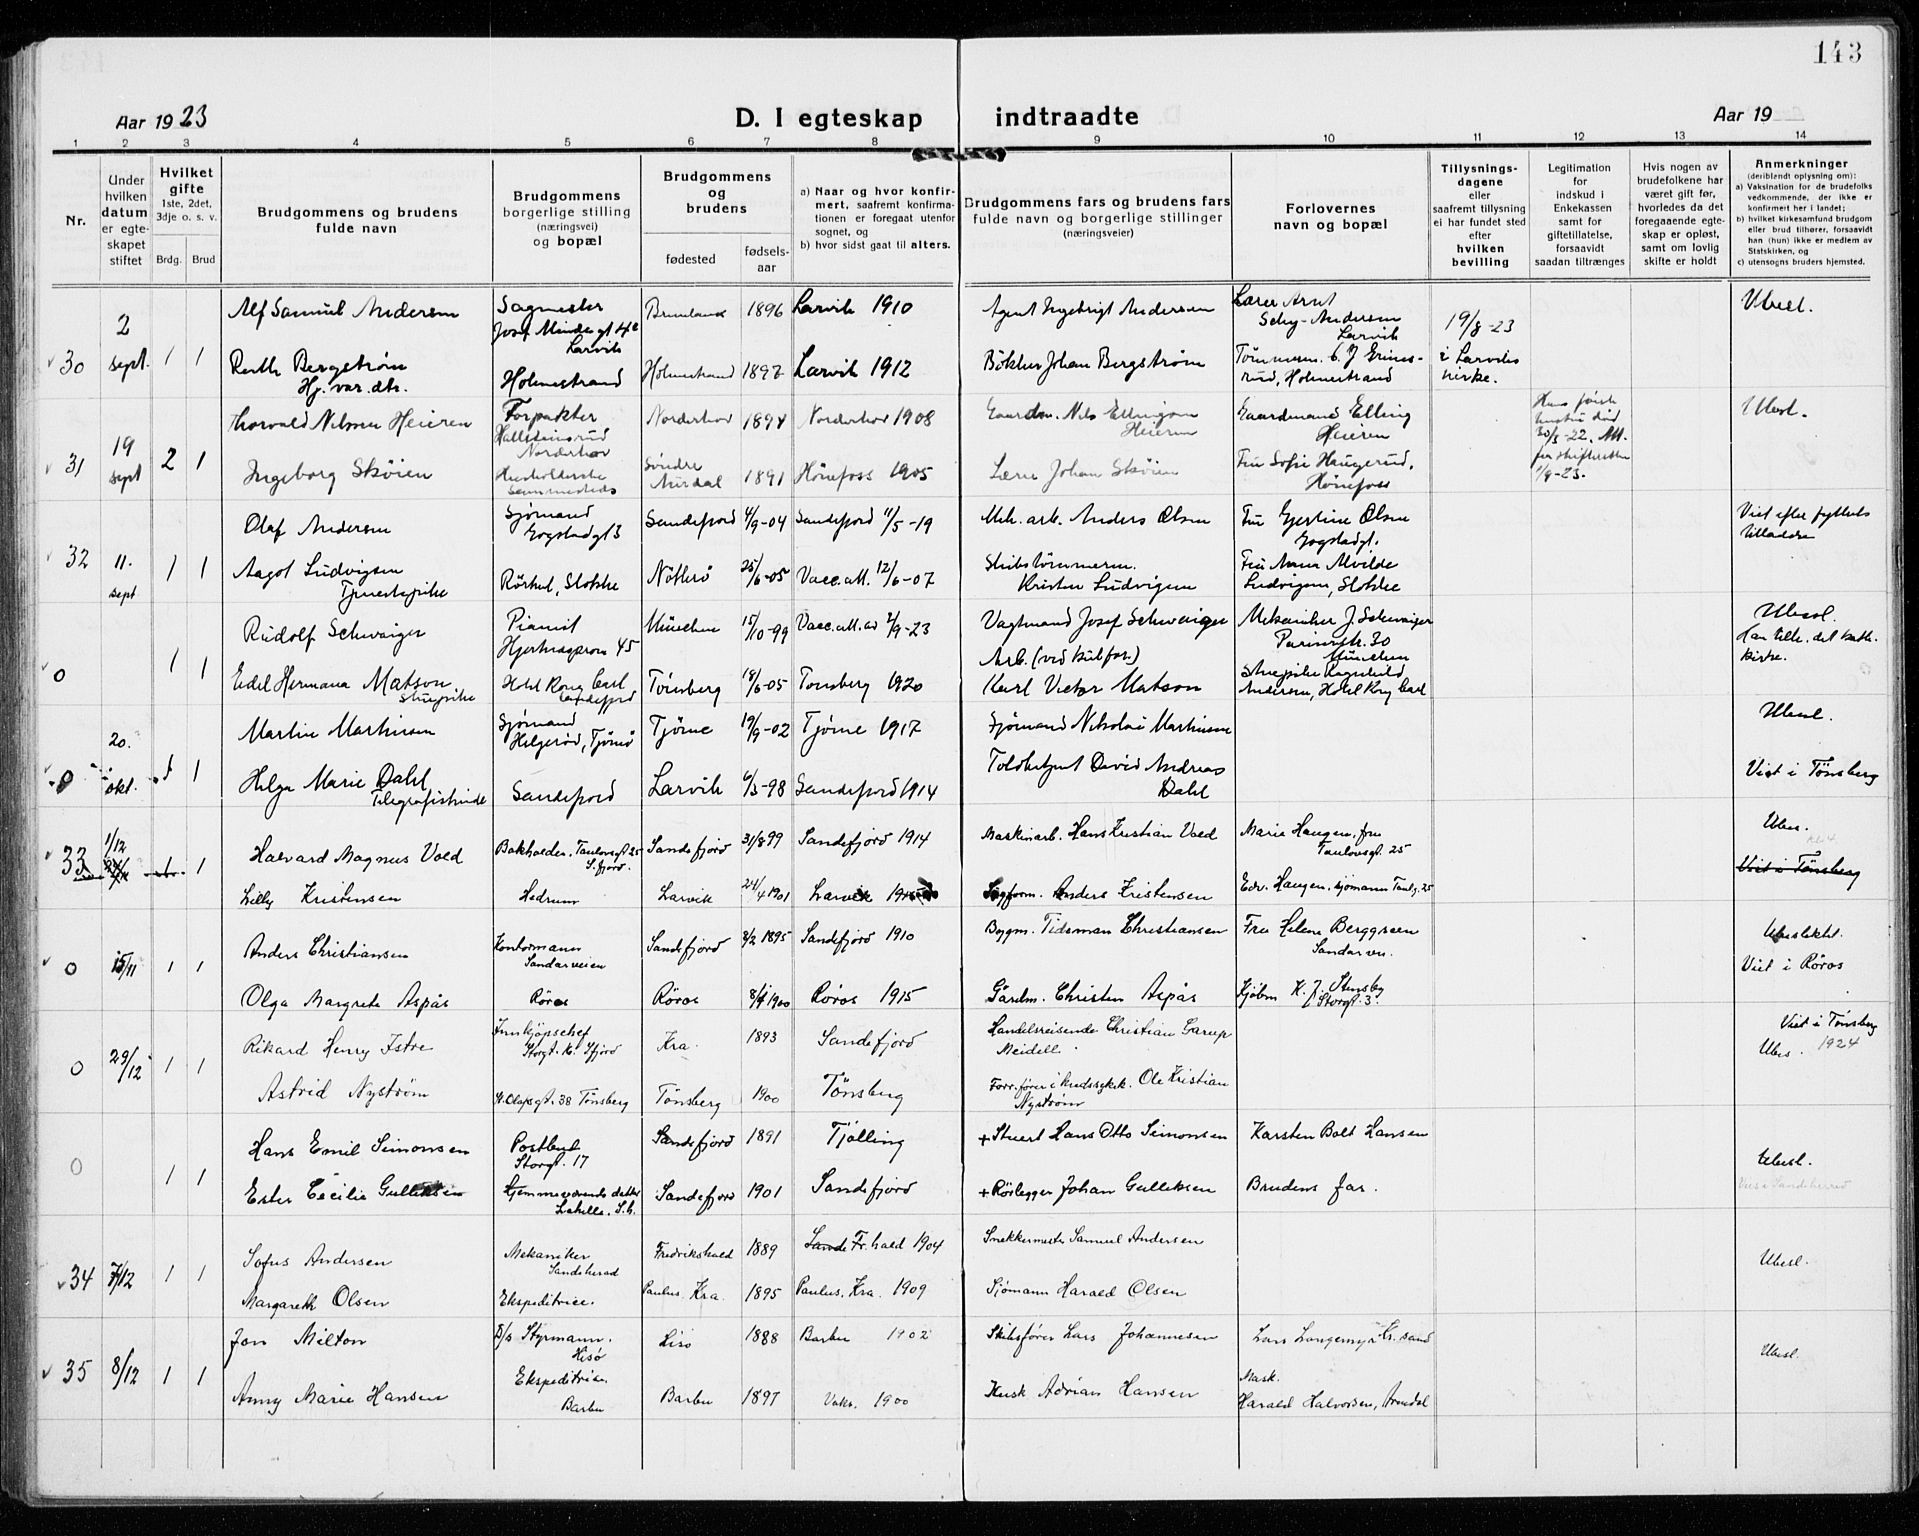 143
Aar 1923
D. I egteskap indtraadte
Aar 19
1 2 3 4 5 6 7 8 9 10 11 12 13 14
Nr.
Under hvilken datum er egteskapet stiftet
Hvilket gifte 1ste, 2det, 3dje o. s. v.
Brdg. Brud
Brudgommens og brudens fulde navn
Brudgommens borgerlige stilling (næringsvei) og bopæl
Brudgommens og brudens
fødested
fødselsaar
a) Naar og hvor konfirmert, saafremt konfirmationen er foregaat utenfor sognet, og
b) hvor sidst gaat til alters.
Brudgommens fars og brudens fars fulde navn og borgerlige stillinger (næringsveier)
Forlovernes navn og bopæl
Tillysningsdagene eller saafremt tillysning ei har fundet sted efter hvilken bevilling
Legitimation for indskud i Enkekassen samt for giftetillatelse, forsaavidt saadan tiltrænges
Hvis nogen av brudefolkene har været gift før, hvorledes da det foregaaende egteskap er opløst, samt om lovlig skifte er holdt
Anmerkninger (deriblendt oplysning om):
a) Vaksination for de brudefolks vedkommende, der ikke er konfirmert her i landet;
b) hvilket kirkesamfund brudgom eller brud tilhører, forsaavidt han (hun) ikke er medlem av Statskirken, og
c) utensogns bruders hjemsted.
30 2 sept. 1 1
Alf Samuel Andersen Sagmester Larvik 1896 Larvik 1910 Agent Ingebrigt Andersen Lærer Arnt Larvik 19/8-23 i Larviks kirke. Ubesl.
Ruth Bergstrøm Hj.var.dtr. Holmestrand Holmestrand 1892 Larvik 1912 Bökker Johan Bergstrøm Holmestrand
31 19 sept 2 1
Thorvald Nilsen Heieren Forpakter Norderhov Norderhov 1894 Norderhov 1908 Gaardm. Nils Ellingsen Heieren Gaardmand Elling Heieren Ubesl.
Ingeborg Skøien Søndre Aurdal 1891 Hönefoss 1905 Lærer Johan Skøien Fru Sofie Haugerud, Hönefoss
32 11. sept 1 1
Olaf Andersen Sjømand Gogstadgt 3 Sandefjord 4/9-04 Sandefjord 11/5-19 Mek. arb. Anders Olsen Fru Gjertine Olsen Gogstadgt. Viet efter fylkets tilladelse
Aagot Ludvigsen Tjenestepike Stokke Nötterö 25/6-05 Vacc.att. 12/6-07 Skibstømmerm. Kristen Ludvigsen Fru Anna Alvilde Ludvigsen, Stokke
0 1 1
Rudolf Schwaiger Pianist München 15/10-99 Vacc.att. av 2/9-23 Vagtmand Josef Schwaiger Mekaniker J. Schwaiger München Ubesl. Han tilh. det kath. kirke.
Edel Hermana Matson Stuepike Hotel Kong Carl Sandefjord Tønsberg 18/6-05 Tønsberg 1920 Arb. Karl Victor Matson Stuepike Ragnhild Andersen, Hotel Kong Carl
0 20. okt. 1 1
Martin Martinsen Sjømand Helgerød, Tjømø Tjøme 19/9-02 Tjøme 1917 Sjømand Nikolai Martinsen Ubesl.
Helga Marie Dahl Telegrafistinde Sandefjord Larvik 6/3-98 Sandefjord 1914 David Andreas Dahl Viet i Tønsberg
33 1/12 1 1
Halvard Magnus Vold Bokholder. S.fjord. Sandefjord 31/8 99 Sandefjord 1914 Maskinarb. Hans Kristian Vold Marie Haugen, fru 25 Ubes.
Viet i Tønsberg
Lilly Kristensen Hedrum Larvik 24/4 1901 Larvik Anders Kristensen Edv. Haugen. sjømann
0 15/11 1 1
Anders Christiansen Kontormann Sandarveien Sandefjord 8/2 1895 Sandefjord 1910 Bygm. Tideman Christiansen Fru Helene Berggreen Sandarvn. Ubeslektet. Viet i Röros
Olga Margrete Aspås Röros Röros 8/4 1900 Röros 1915 Gårdm. Christen Aspås Kjøbm K. J. Stensby Storgt. 3.
0 29/12 1 1
Rikard Henry Istre Innkjöpschef Kra. 1893 Sandefjord Handelsreisende Christian Garup Meidell Viet i Tønsberg 1924 Ubes.
Astrid Nyström St. Olafsgt. 38 Tönsberg Tönsberg 1900 Tönsberg Ole Kristian Nyström
0 1 1
Hans Emil Simonsen Postbud Storgt. 17 Sandefjord 1891 Tjölling + Stuert Hans Otto Simonsen Karsten Bolt Hansen Ubesl.
Ester Cecilie Gulliksen Sandefjord 1901 Sandefjord + Rörlegger Johan Gulliksen Brudens far.
34 7/12 1 1
Sofus Andersen Mekaniker Sandeherad Fredrikshald 1889 Fr.hald 1904 Snekkermester Samuel Andersen Ubesl.
Margareth Olsen Ekspeditrice. Paulus. Kra. 1895 Paulus. Kra. 1909 Sjømann Harald Olsen
35 8/12 1 1
Jon Milton Styrmann. Hisø Hisö 1888 Barbu 1902 Skibsfører Lars Johannesen Lars Langemyr Kr.sand Ubesl.
Anny Marie Hansen Ekspeditrice. Barbu Barbu 1897 Vaks. 1900 Kusk Adrian Hansen Mask. Harald Halvorsen, Arendal